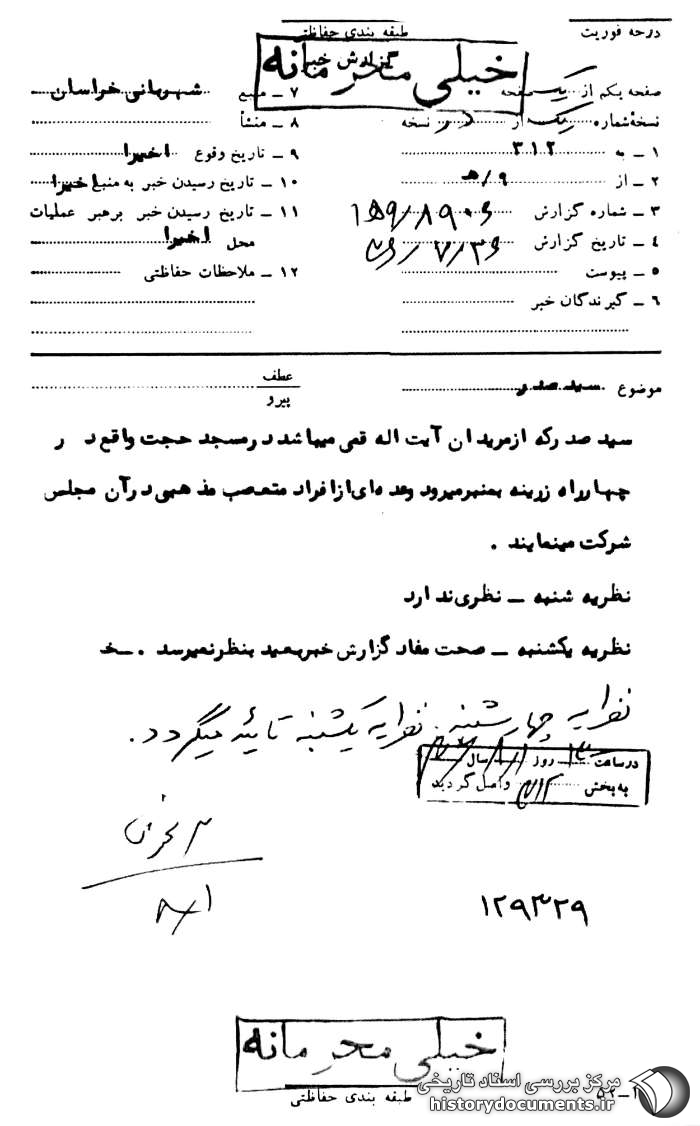 درجه فوریت
طبقه بندی حفاظتی
گزارش خبر
خیلی محرمانه
صفحه یکم از یک صفحه
نسخهٔ شماره یک از دو نسخه
۱ ـ به ۳۱۲
۲ ـ از ۹/هـ
۳ ـ شماره گزارش ۱۵۹/۸۹۰۶
۴ ـ تاریخ گزارش ۳۶/۷/۲۶
۵ ـ پیوست
۶ ـ گیرندگان خبر
۷ ـ منبع شهربانی خراسان
۸ ـ منشأ
۹ ـ تاریخ وقوع اخیرا
۱۰ ـ تاریخ رسیدن خبر به منبع اخیرا
۱۱ ـ تاریخ رسیدن خبر برهبر عملیات
محل اخیرا
۱۲ ـ ملاحظات حفاظتی
موضوع سید صدر
عطف
پیرو
سید صدرکه ازمریدان آیت اله قمی میباشد درمسجد حجت واقع در
چهارراه زرینه بمنبرمیرود وعده ای ازافراد متعصب مذهبی درآن مجلس
شرکت مینمایند .
نظریه شنبه ـ نظری ندارد
نظریه یکشنبه ـ صحت مفاد گزارش خبربعید بنظرنمیرسد . ـخ
نظریه چهارشنبه . نظریه یکشنبه تائید میگردد .
در ساعت روز سال
به بخش ۳۱۲ واصل گردید
۸/۱
۱۲۹۳۲۹
خیلی محرمانه
طبقه بندی حفاظتی
۵۲ـ۱
مرکز بررسی اسناد تاریخی
historydocuments.ir